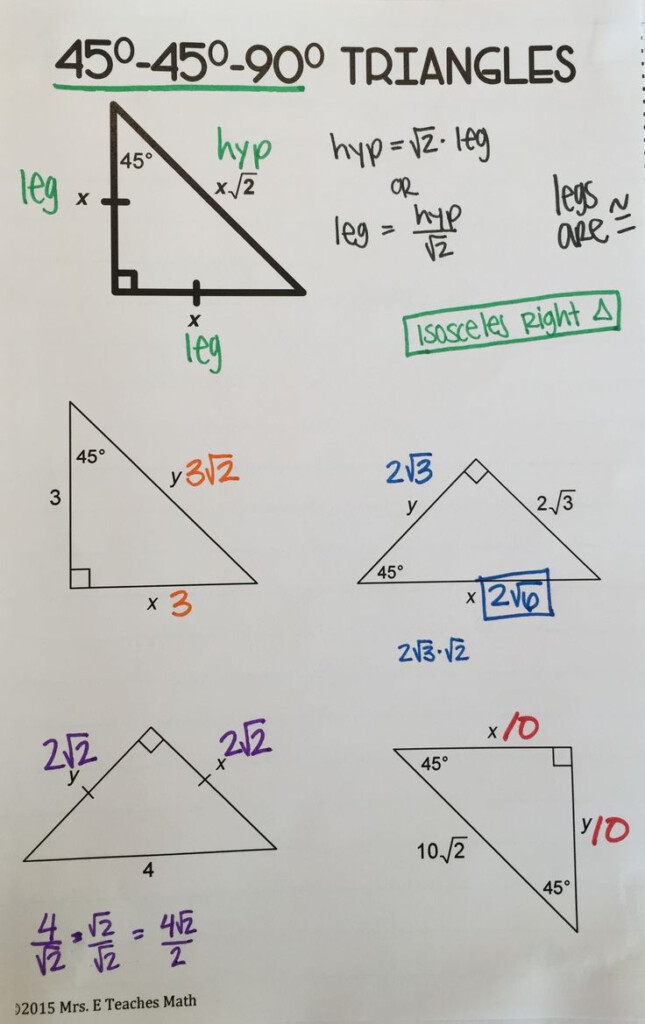 45°-45°-90° TRIANGLES
45°
hyp
x√2
leg x
x
leg
hyp = √2 · leg
OR
leg = hyp/√2
legs
are ≅
Isosceles Right △
45°
3
y 3√2
x 3
2√3
y
2√3
45°
x 2√6
2√3·√2
2√2
y
2√2
x
4
4/√2 · √2/√2 = 4√2/2
x 10
45°
y 10
10√2
45°
©2015 Mrs. E Teaches Math